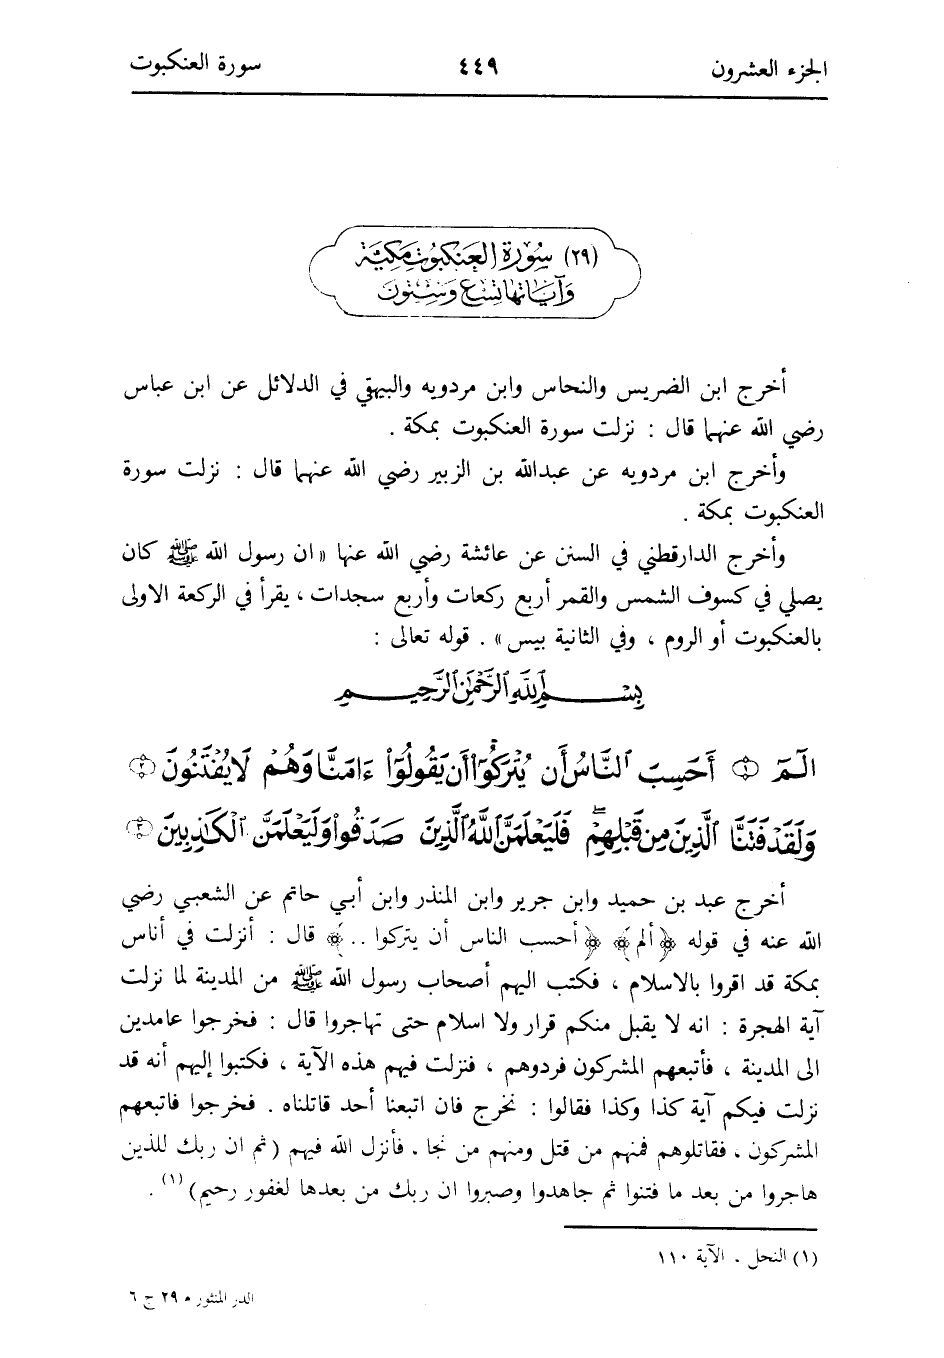 الجزء العشرون ٤٤٩ سورة العنكبوت
(٢٩) سُورَة العَنكبوت مَكيّة
وَآيَاتها تسع وَستون
أخرج ابن الضريس والنحاس وابن مردويه والبيهقي في الدلائل عن ابن عباس
رضي الله عنهما قال : نزلت سورة العنكبوت بمكة .
وأخرج ابن مردويه عن عبدالله بن الزبير رضي الله عنهما قال : نزلت سورة
العنكبوت بمكة .
وأخرج الدارقطني في السنن عن عائشة رضي الله عنها « ان رسول الله ﷺ كان
يصلي في كسوف الشمس والقمر أربع ركعات وأربع سجدات ، يقرأ في الركعة الاولى
بالعنكبوت أو الروم ، وفي الثانية بيس » . قوله تعالى :
بِسْمِ ٱللَّهِ ٱلرَّحْمَٰنِ ٱلرَّحِيمِ
الٓمٓ ﴿١﴾ أَحَسِبَ ٱلنَّاسُ أَن يُتْرَكُوٓا۟ أَن يَقُولُوٓا۟ ءَامَنَّا وَهُمْ لَا يُفْتَنُونَ ﴿٢﴾
وَلَقَدْ فَتَنَّا ٱلَّذِينَ مِن قَبْلِهِمْ ۖ فَلَيَعْلَمَنَّ ٱللَّهُ ٱلَّذِينَ صَدَقُوا۟ وَلَيَعْلَمَنَّ ٱلْكَٰذِبِينَ ﴿٣﴾
أخرج عبد بن حميد وابن جرير وابن المنذر وابن أبي حاتم عن الشعبي رضي
الله عنه في قوله ﴿ألم﴾ ﴿أحسب الناس أن يتركوا ..﴾ قال : أنزلت في أناس
بمكة قد اقروا بالاسلام ، فكتب اليهم أصحاب رسول الله ﷺ من المدينة لما نزلت
آية الهجرة : انه لا يقبل منكم قرار ولا اسلام حتى تهاجروا قال : فخرجوا عامدين
الى المدينة ، فأتبعهم المشركون فردوهم ، فنزلت فيهم هذه الآية ، فكتبوا إليهم أنه قد
نزلت فيكم آية كذا وكذا فقالوا : نخرج فان اتبعنا أحد قاتلناه . فخرجوا فاتبعهم
المشركون ، فقاتلوهم فمنهم من قتل ومنهم من نجا . فأنزل الله فيهم (ثم ان ربك للذين
هاجروا من بعد ما فتنوا ثم جاهدوا وصبروا ان ربك من بعدها لغفور رحيم) (١) .
(١) النحل . الآية ١١٠
الدر المنثور • ٢٩ ج ٦